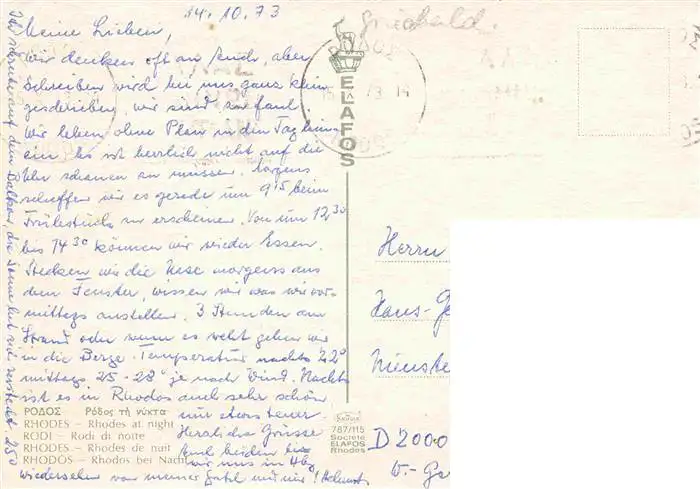 14.10.73
Meine Lieben,
wir denken oft an Euch, aber
Schreiben wird bei uns ganz klein
geschrieben, wir sind zu faul.
Wir leben ohne Plan in den Tag hinein
Es ist herrlich nicht auf die
Uhr schauen zu müssen. Morgens
schaffen wir es gerade um 9 15 beim
Frühstück zu erscheinen. Von um 12,30
bis 14 30 können wir wieder Essen.
Stecken wir die Nase morgens aus
dem Fenster, wissen wir was wir vor-
mittags anstellen. 3 Stunden am
Strand oder wenn es weht gehen wir
in die Berge. Temperatur nachts 22°
mittags 25-28° je nach Wind. Nachts
ist es in Rhodos auch sehr schön,
nur etwas teuer.
Herzliche Grüsse
Euch beiden bis
wir uns in Hbg
wiedersehen von meiner und mir! Helmut
Ich schreibe auf dem Balkon, die Sonne hat sich versteckt 25°
ΡΟΔΟΣ – Ρόδος τή νύκτα
RHODES – Rhodes at night
RODI – Rodi di notte
RHODES – Rhodes de nuit
RHODOS – Rhodos bei Nacht
ELAFOS
ΡΟΔΟΣ
14
787/115
Société
ELAFOS
Rhodes
Herrn
Hans-Ge
Nienste
D 2000